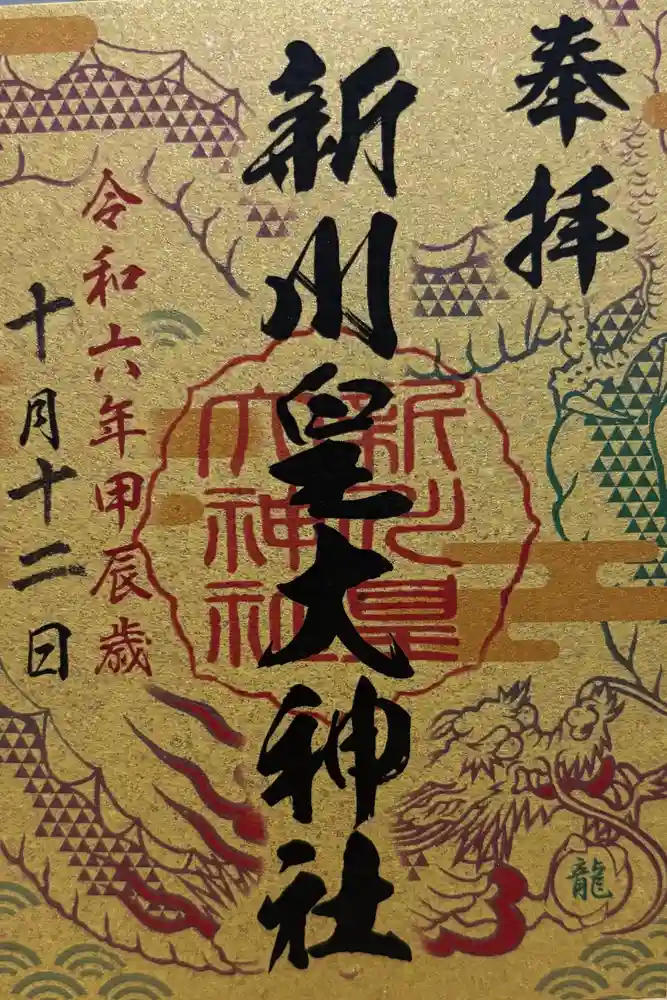 奉拝
新川皇大神社
新川皇
大神社
令和六年甲辰歳
十月十二日
龍